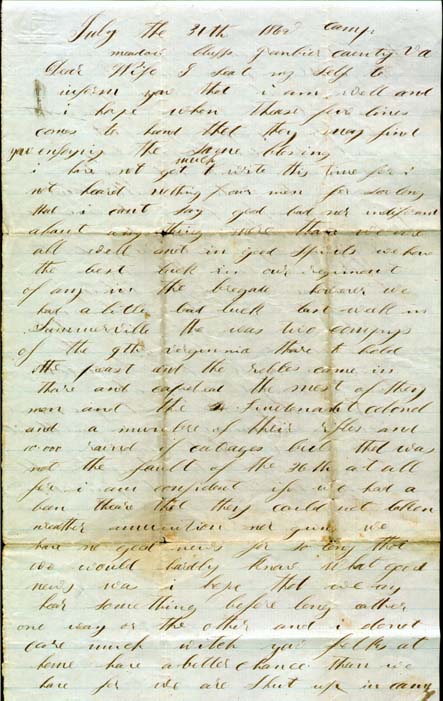 July the 31th 1862 camp
meadow bluffs granbier caenty Va
Dear Wife I seat my self to
inform you that i am well and
i hope when these few lines
comes to hand that they may find
you enjoying the same blesing
i have not got much to write this time for i
not heard nothing from for so long
that i cant say good bad nor indifarant
about any thing more than we are
all well and in good spirits we have
the best luck in our regiment
of any in the bregade however we
had a little bad luck last weak in
Summerville the was two compnys
of the 9th virginnia thare to hold
the poast and the rebles came in
thare and captured the most of they
men and the Lieutenant colonel
and a number of their rifles and
rounds of catrages but that was
not the fault of the 36th at all
for i am confident if we had a
been theare that they could not taken
neather amunition nor guns we
have no good news for so long that
we would hardly know what good
news was i hope that we my
hear something before long eather
one way or the other and i donot
care much witch you folks at
home have a better chance than we
have for we are shut up in camp